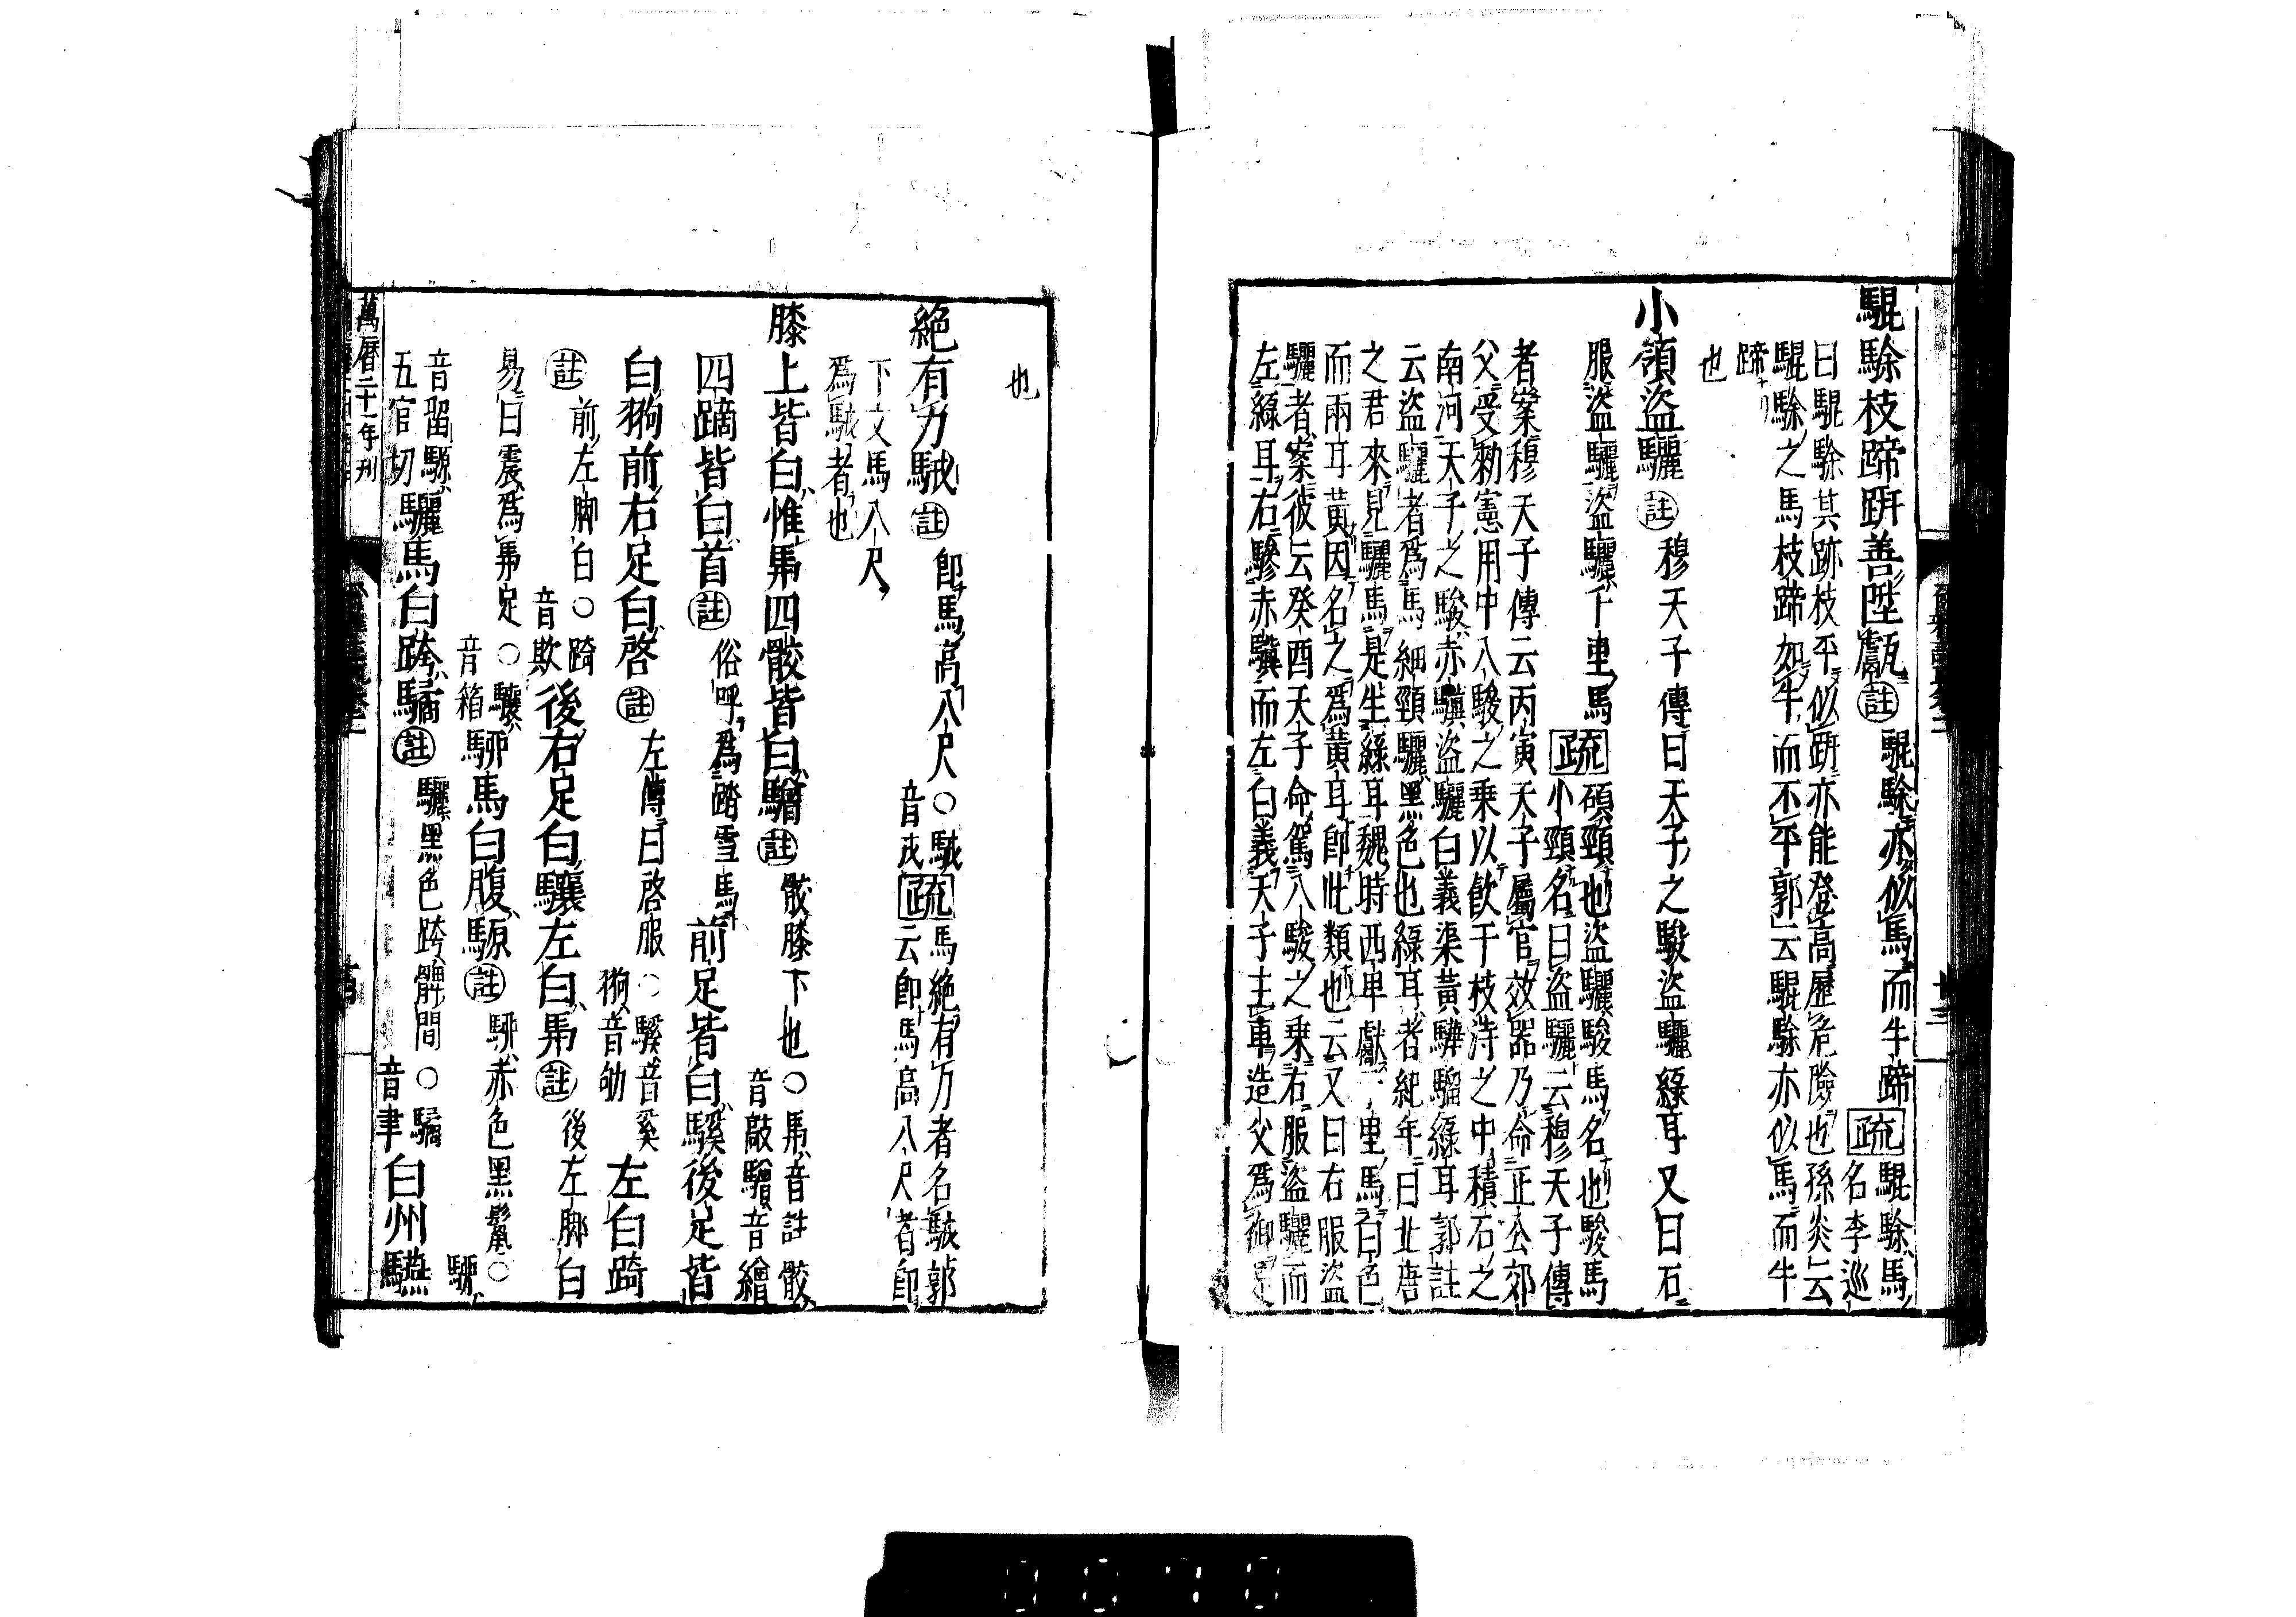 騉駼枝蹄趼善陞甗註騉駼亦似馬而牛蹄疏騉駼馬
名李巡
曰騉駼其跡枝平似趼亦能登高歷危險也孫炎云
騉駼之馬枝蹄如牛而不平郭云騉駼亦似馬而牛
蹄
也
小領盜驪註穆天子傳曰天子之駿盜驪綠耳又曰右
服盜驪盜驪千里馬疏領頸也盜驪駿馬名也駿馬
小頸名曰盜驪云穆天子傳
者案穆天子傳云丙寅天子屬官效器乃命正公郊
父受勑憲用申八駿之乘以飲于枝洔之中積石之
南河天子之駿赤驥盜驪白義渠黃驊騮綠耳郭註
云盜驪者為馬細頸驪黑色也綠耳者紀年曰北唐
之君來見驪馬是生綠耳魏時西卑獻千里馬白色
而兩耳黃因名之為黃耳即此類也云又曰右服盜
驪者案彼云癸酉天子命駕八駿之乘右服盜驪而
左綠耳右驂赤驥而左白義天子主車造父為御是
也
絕有力駥註即馬高八尺○駥
音戎疏馬絕有力者名駥郭
云即馬高八尺者即
下文馬八尺
為駥者也
膝上皆白惟馵四骹皆白驓註骹膝下也○馵音註骹
音敲驓音繒
四蹢皆白首註俗呼為踏雪馬前足皆白騱後足皆
白翑前右足白啓註左傳曰啓服○騱音奚
翑音劬左白踦
註前左脚白○踦
音欺後右足白驤左白馵註後左脚白
易曰震為馵足○驤
音箱駵馬白腹騵註駵赤色黑鬣○駵
音留騵
五官切驪馬白跨驈註驪黑色跨髀間○驈
音聿白州驠
萬曆二十一年刊